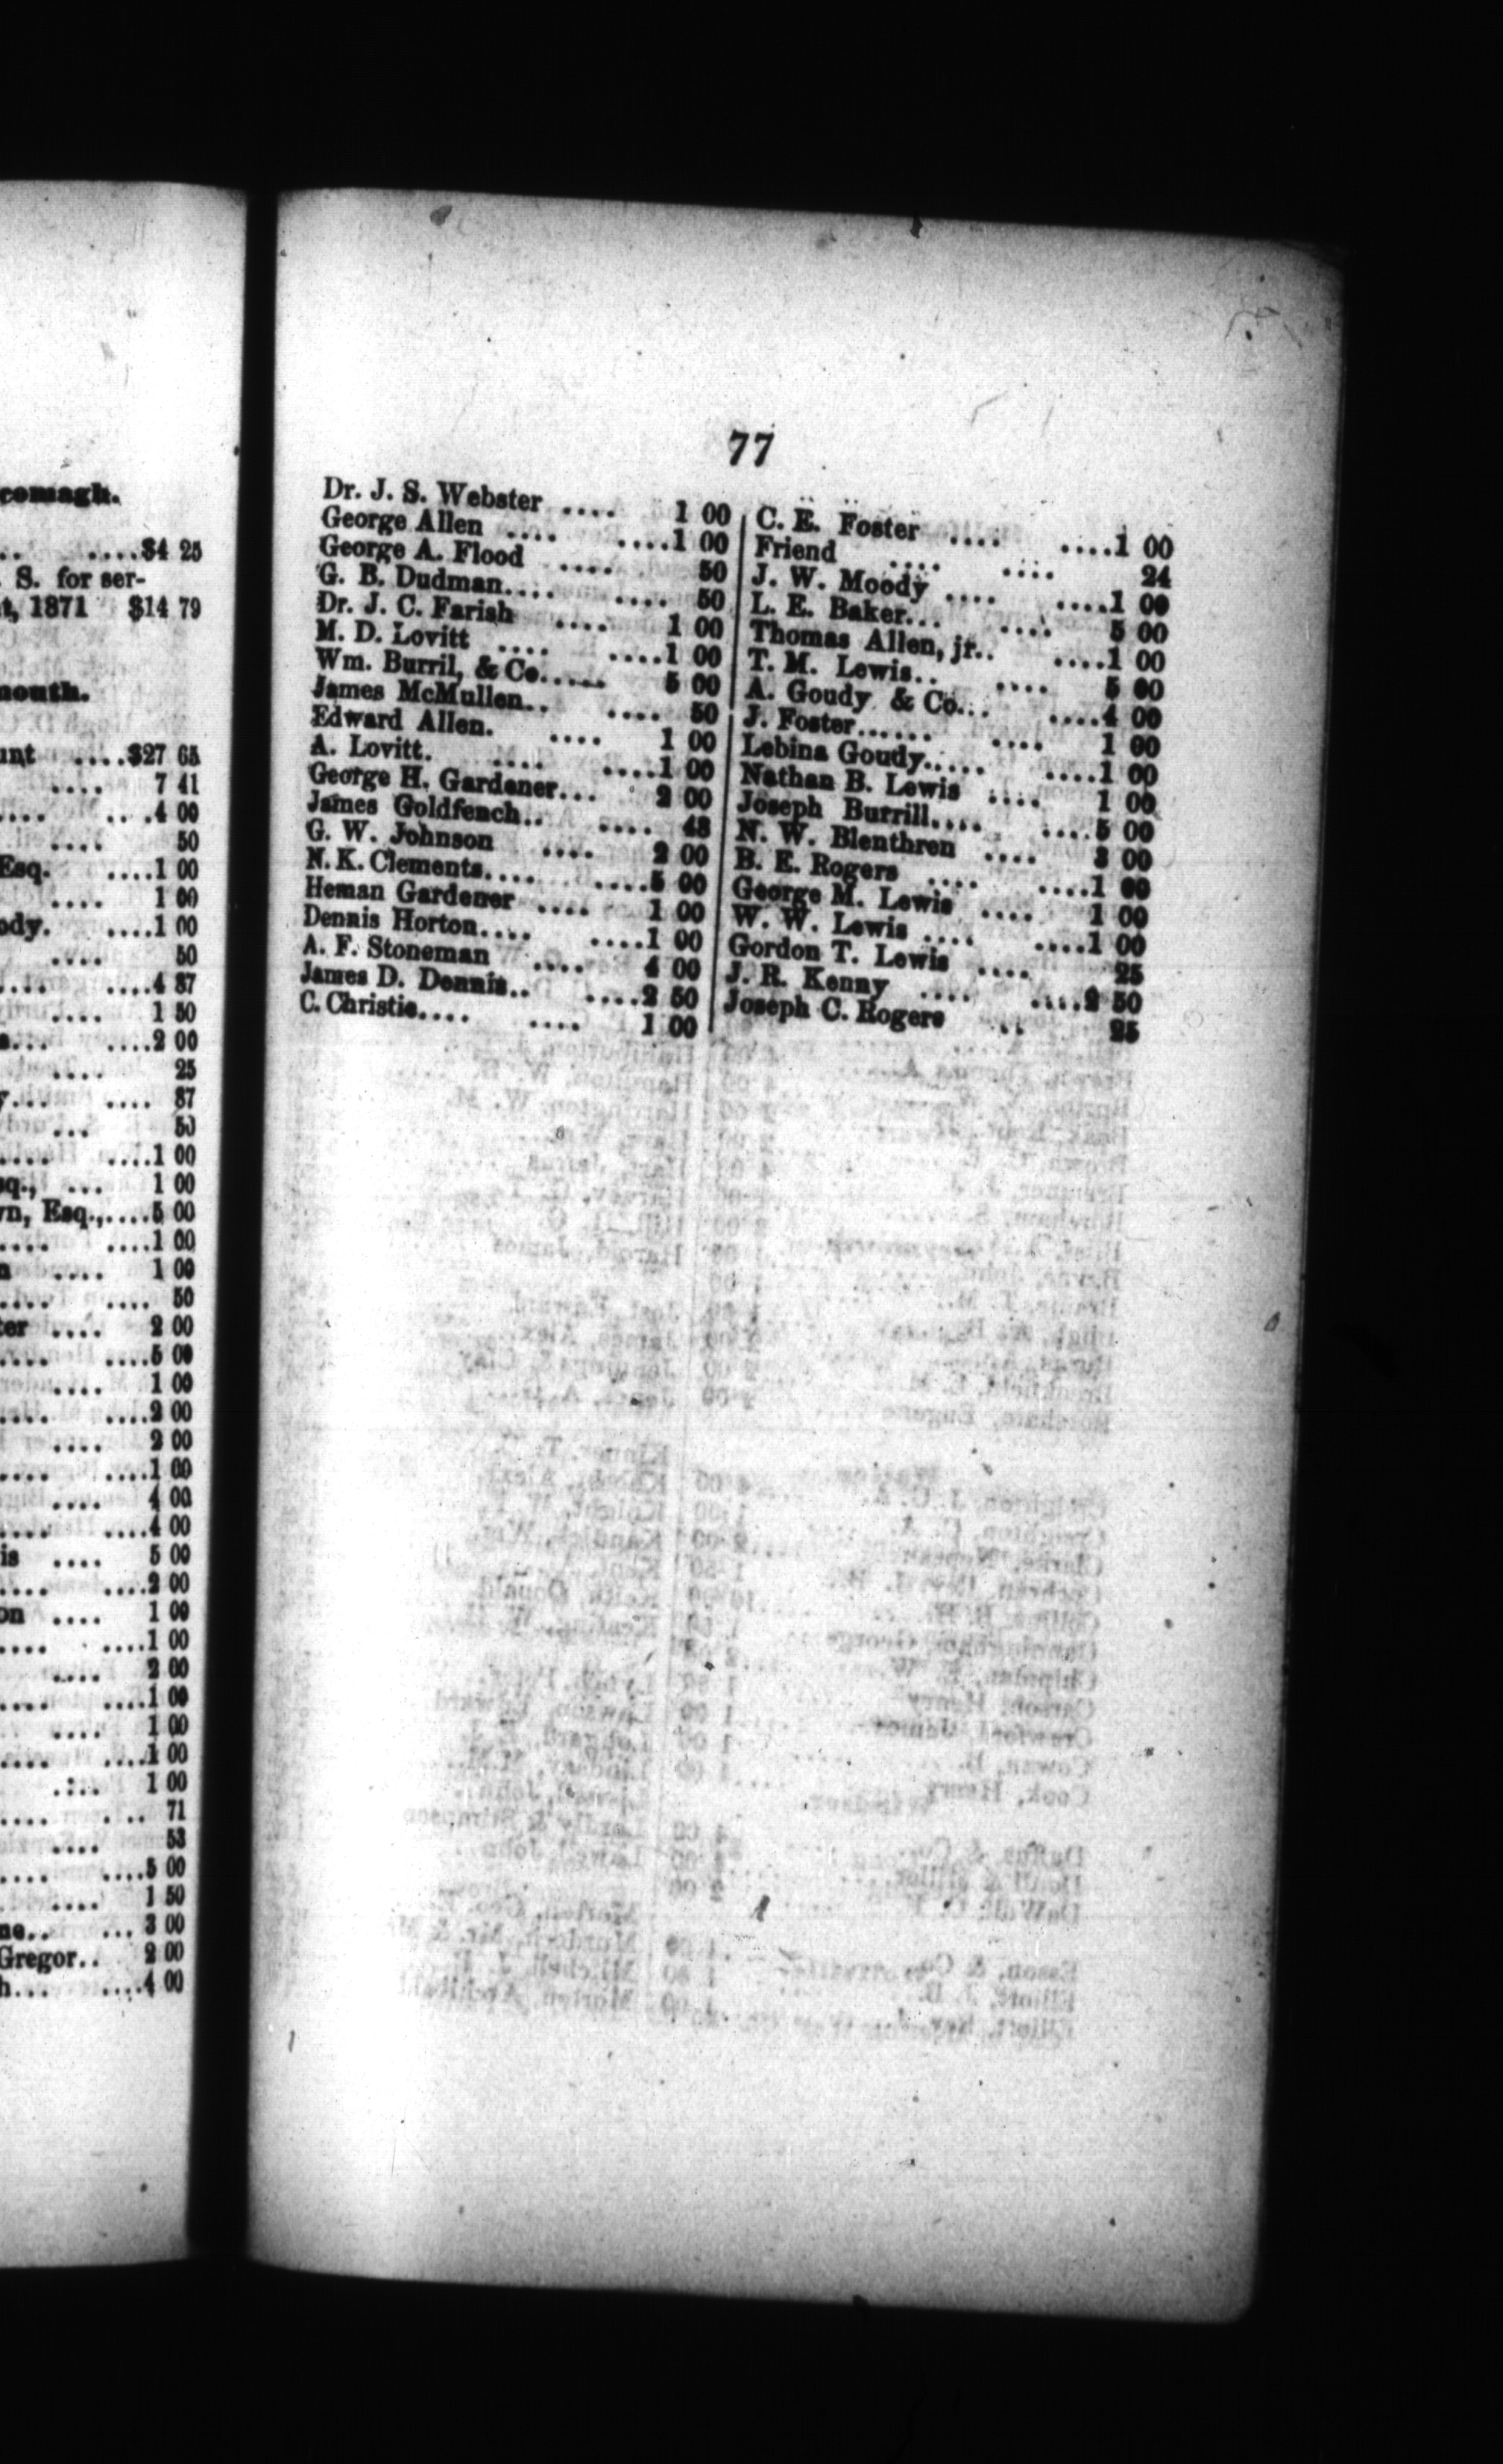 comagh.
.. ....$4 25
. S. for ser-
t, 1871 $14 79
mouth.
unt ....$27 65
.... 7 41
.... ....4 00
.... 50
Esq. ....1 00
.... 1 00
ody. ....1 00
.... 50
.... ....4 87
.... 1 50
s... ....2 00
.... 25
y... .... 87
... 50
.... ....1 00
sq., ... 1 00
vn, Esq.,....5 00
.... ....1 00
n .... 1 00
.... .... 50
ter .... 2 00
.... ....5 00
.... 1 00
.... ....2 00
.... 2 00
.... ....1 00
.... 4 00
.... ....4 00
is .... 5 00
.... ....2 00
on .... 1 00
.... ....1 00
.... 2 00
.... ....1 00
.... 1 00
.... ....1 00
.... 1 00
.... ... 71
.... 53
.... ....5 00
.... 1 50
ne.. ... 3 00
Gregor.. 2 00
h... ....4 00
77
Dr. J. S. Webster .... 1 00
George Allen .... ....1 00
George A. Flood .... 50
G. B. Dudman.... .... 50
Dr. J. C. Farish .... 1 00
M. D. Lovitt .... ....1 00
Wm. Burril, & Co..... 5 00
James McMullen.. .... 50
Edward Allen. .... 1 00
A. Lovitt. .... ....1 00
George H. Gardener... 2 00
James Goldfench.. .... 48
G. W. Johnson .... 2 00
N. K. Clements.... ....5 00
Heman Gardener .... 1 00
Dennis Horton.... ....1 00
A. F. Stoneman .... 4 00
James D. Dennis.. ....2 50
C. Christie.... .... 1 00
C. E. Foster .... ....1 00
Friend .... .... 24
J. W. Moody .... ....1 00
L. E. Baker... .... 5 00
Thomas Allen, jr.. ....1 00
T. M. Lewis.. .... 5 00
A. Goudy & Co... ....4 00
J. Foster...... .... 1 00
Lebina Goudy..... ....1 00
Nathan B. Lewis .... 1 00
Joseph Burrill.... ....5 00
N. W. Blenthren .... 3 00
B. E. Rogers .... ....1 00
George M. Lewis .... 1 00
W. W. Lewis .... ....1 00
Gordon T. Lewis .... 25
J. R. Kenny .... ....2 50
Joseph C. Rogers .. 25